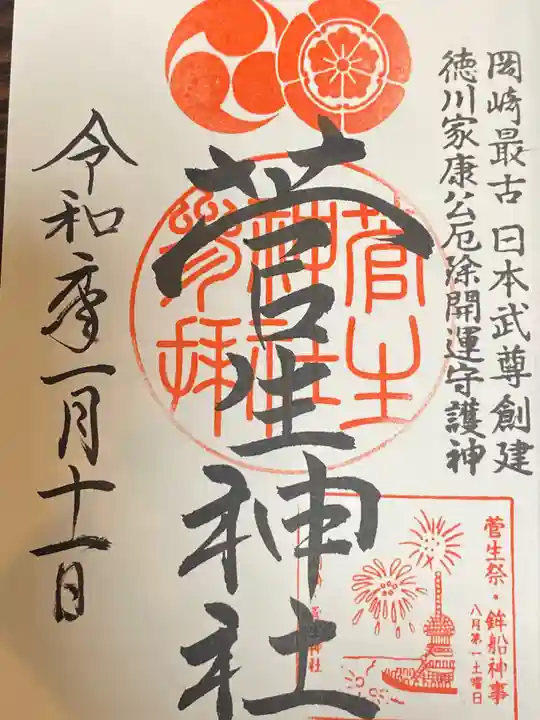 岡崎最古 日本武尊創建
徳川家康公厄除開運守護神
菅生神社
菅生
神社
参拝
令和六年一月十一日
菅生祭・鉾船神事
八月第一土曜日
菅生神社